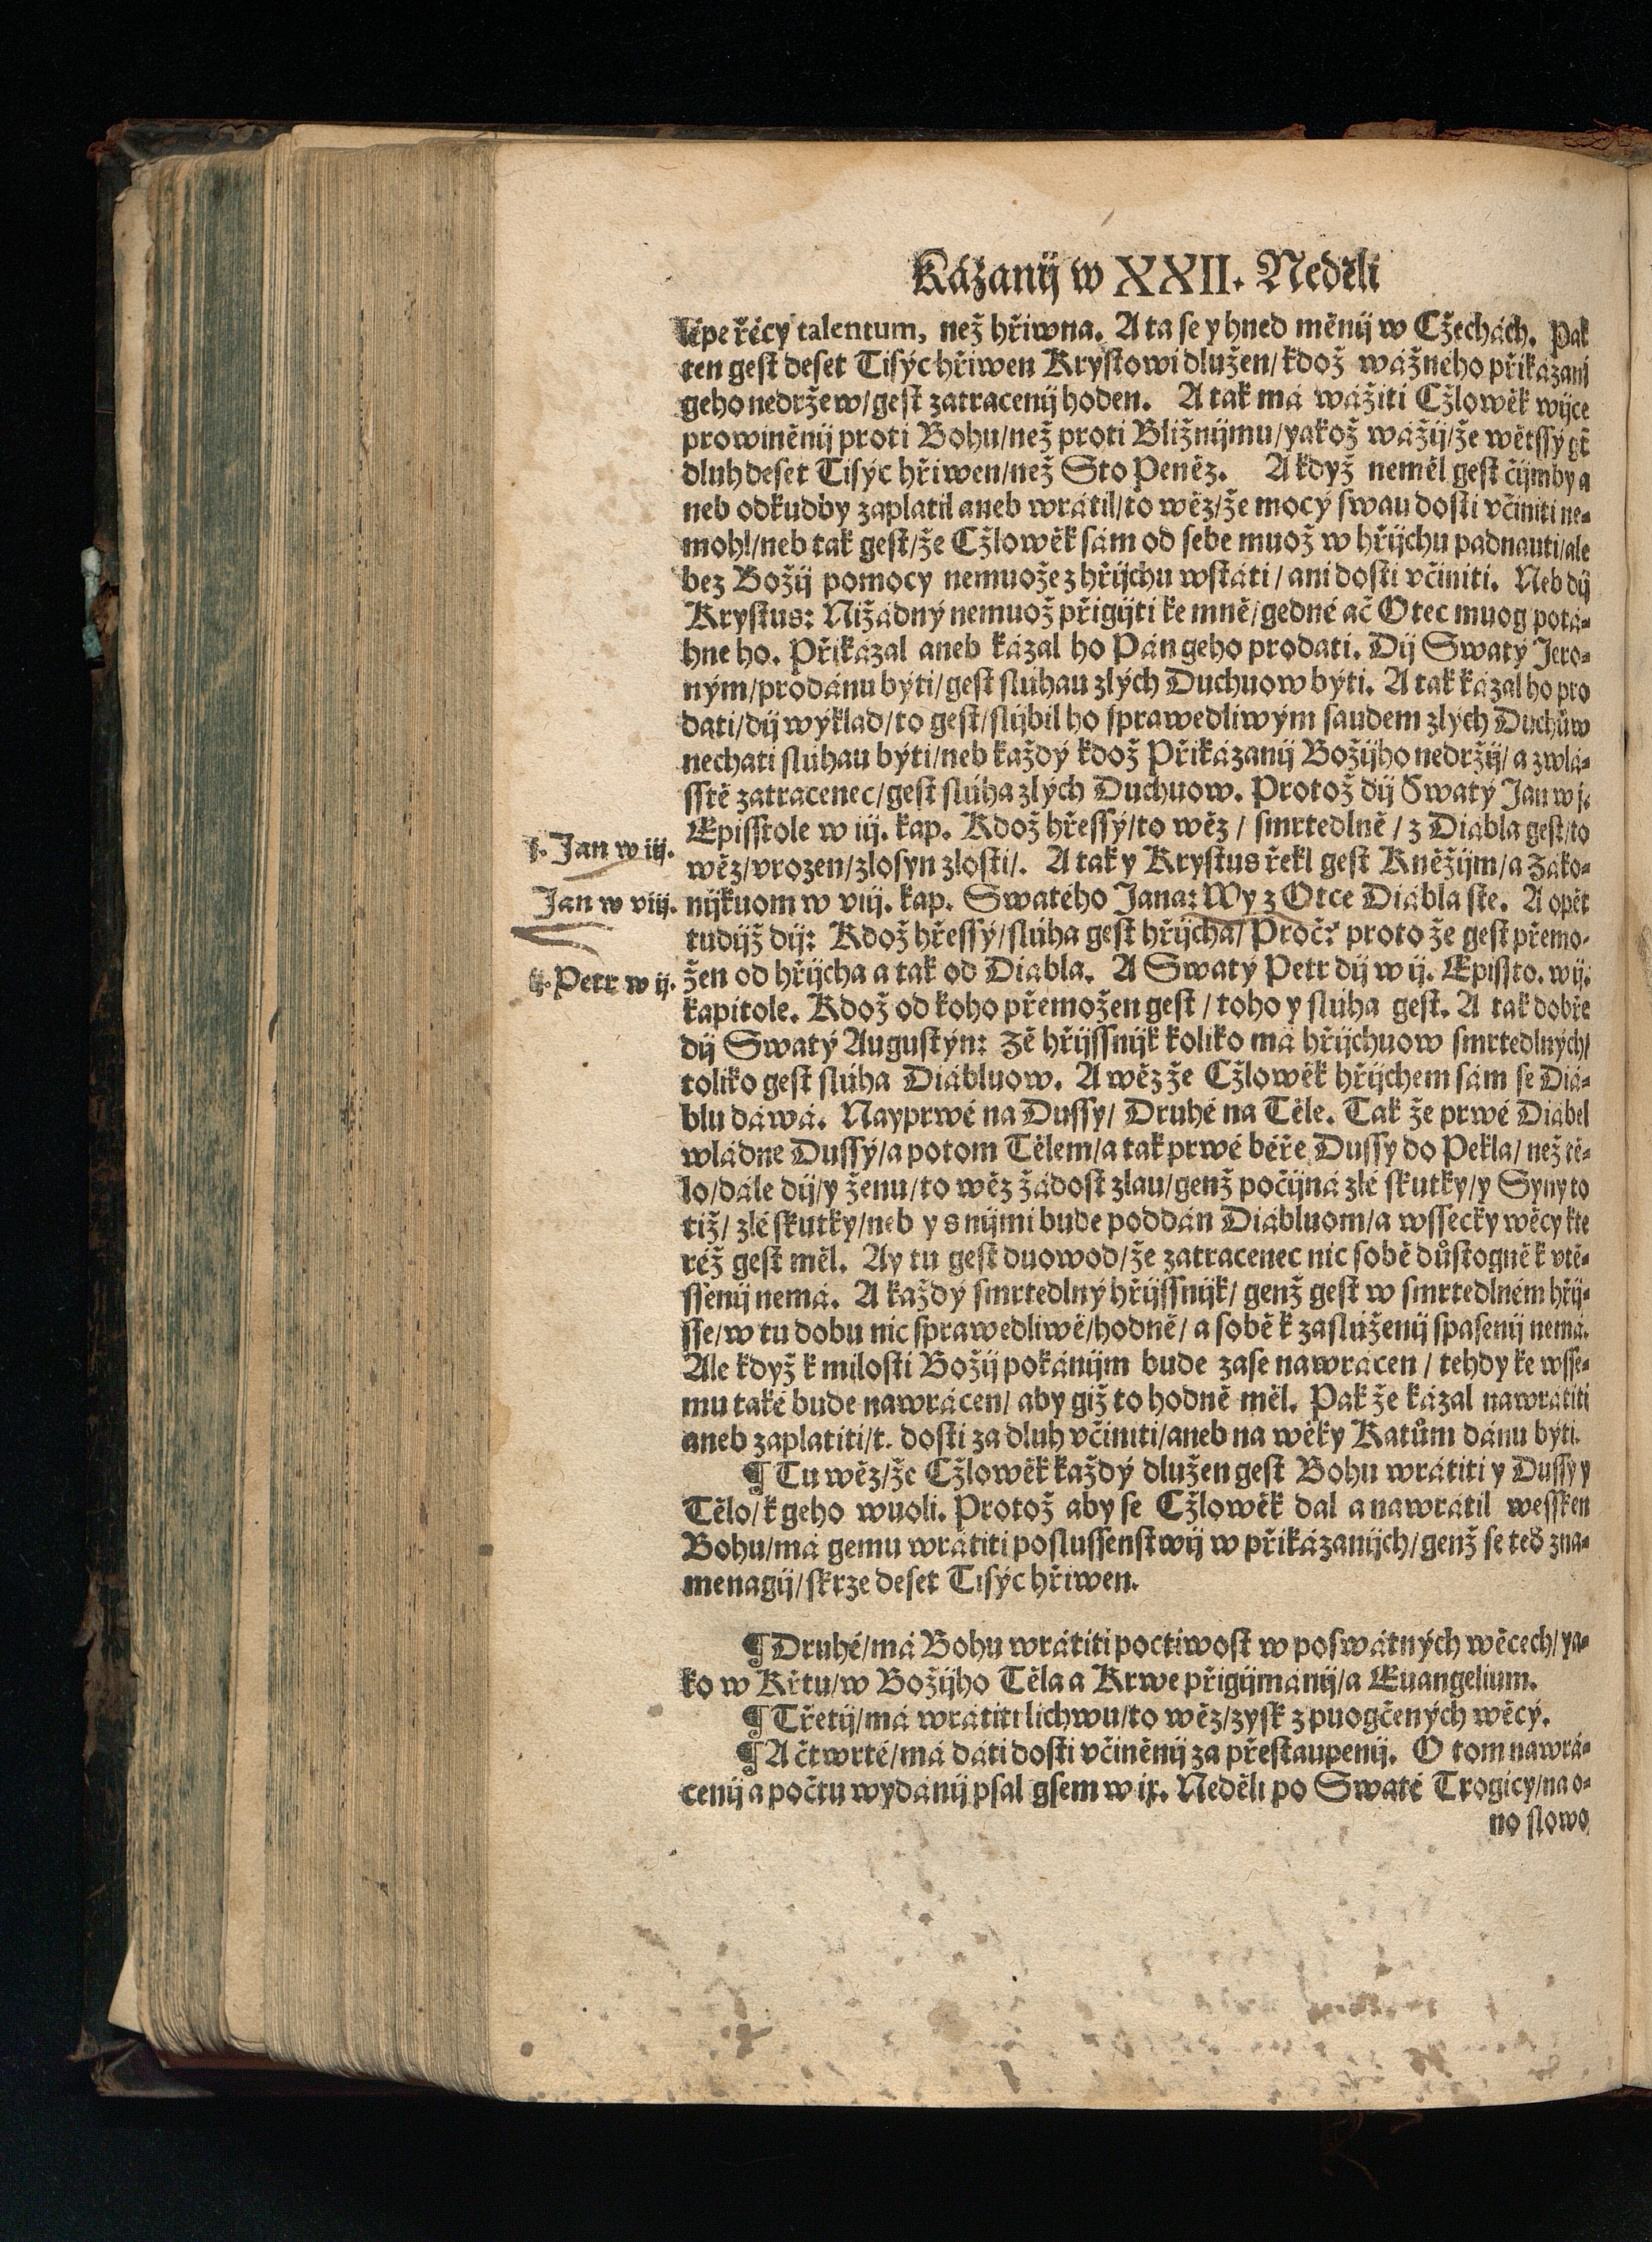 Kázanij w XXII. Neděli
lépe řécy talentum, než hřiwna. A ta se y hned měnij w Cžechách. Pak
ten gest deset Tisýc hřiwen Krystowi dlužen/ kdož wážneho přikázani
geho nedržew/ gest zatracenij hoden. A tak má wážiti Cžlowěk wijce
prowiněnij proti Bohu/ než proti Bližnijmu/ yakož wážij/ že wětssý gt
dluh deset Tisýc hřiwen/ než Sto Peněz. A když neměl gest čijmby a
neb odkudby zaplatil aneb wrátil/ to wěz/ že mocý swau dosti včiniti ne-
mohl/ neb tak gest/ že Cžlowěk sám od sebe muož w hřijchu padnauti/ ale
bez Božij pomocy nemuože z hřijchu wstáti/ ani dosti včiniti. Neb dij
Krystus: Nižádný nemuož přigijti ke mně/ gedné ač Otec muog potá-
hne ho. Přikázal aneb kázal ho Pán geho prodati. Dij Swatý Jero-
ným/ prodánu býti/ gest slúhau zlých Duchuow býti. A tak kázal ho pro
dati/ dij wýklad/ to gest/ slýbil ho sprawedliwým saudem zlých Duchůw
nechati slúhau býti/ neb každý kdož Přikázanij Božijho nedržij/ a zwlá-
sstě zatracenec/ gest slúha zlých Duchuow. Protož dij Swatý Jan w j.
Episstole w iij. kap. Kdož hřessý/ to wěz/ smrtedlně/ z Diábla gest/ to
j. Jan w iij.
wěz/ vrozen/ zlosyn zlosti/. A tak y Krystus řekl gest Kněžijm/ a Záko-
Jan w viij.
nijkuom w viij. kap. Swatého Jana: Wy z Otce Diábla ste. A opět
tudijž dij: Kdož hřessý/ slúha gest hřijcha/ Proč? proto že gest přemo-
ij. Petr w ij.
žen od hřijcha a tak od Diábla. A Swatý Petr dij w ij. Epissto. w ij.
kapitole. Kdož od koho přemožen gest/ toho y slúha gest. A tak dobře
dij Swatý Augustýn: Zě hřijssnijk koliko má hřijchuow smrtedlných/
toliko gest slúha Diábluow. A wěz že Cžlowěk hřijchem sám se Diá-
blu dáwá. Nayprwé na Dussy/ Druhé na Těle. Tak že prwé Diábel
wládne Dussý/ a potom Tělem/ a tak prwé béře Dussy do Pekla/ než tě-
lo/ dále dij/ y ženu/ to wěz žádost zlau/ genž počijná zlé skutky/ y Syny to
tiž/ zlé skutky/ neb y s nijmi bude poddán Diábluom/ a wssecky wěcy kte
réž gest měl. Ay tu gest duowod/ že zatracenec nic sobě důstogně k vtě-
ssenij nemá. A každý smrtedlný hřijssnijk/ genž gest w smrtedlném hřij-
sse/ w tu dobu nic sprawedliwě/ hodně/ a sobě k zaslúženij spasenij nemá.
Ale když k milosti Božij pokánijm bude zase nawrácen/ tehdy ke wsse-
mu také bude nawrácen/ aby giž to hodně měl. Pak že kázal nawrátiti
aneb zaplatiti/ t. dosti za dluh včiniti/ aneb na wěky Katům dánu býti.
¶ Tu wěz/ že Cžlowěk každý dlužen gest Bohu wrátiti y Dussy y
Tělo/ k geho wuoli. Protož aby se Cžlowěk dal a nawrátil wessken
Bohu/ má gemu wrátiti poslussenstwij w přikázanijch/ genž se teď zna-
menagij/ skrze deset Tisýc hřiwen.
¶ Druhé/ má Bohu wrátiti poctiwost w poswátných wěcech/ ya-
ko w Křtu/ w Božijho Těla a Krwe přigijmánij/ a Euangelium.
¶ Třetij/ má wrátiti lichwu/ to wěz/ zysk z puogčených wěcý.
¶ A čtwrté/ má dáti dosti včiněnij za přestaupenij. O tom nawrá-
cenij a počtu wydánij psal gsem w ix. Neděli po Swaté Trogicy/ na o-
no slowo